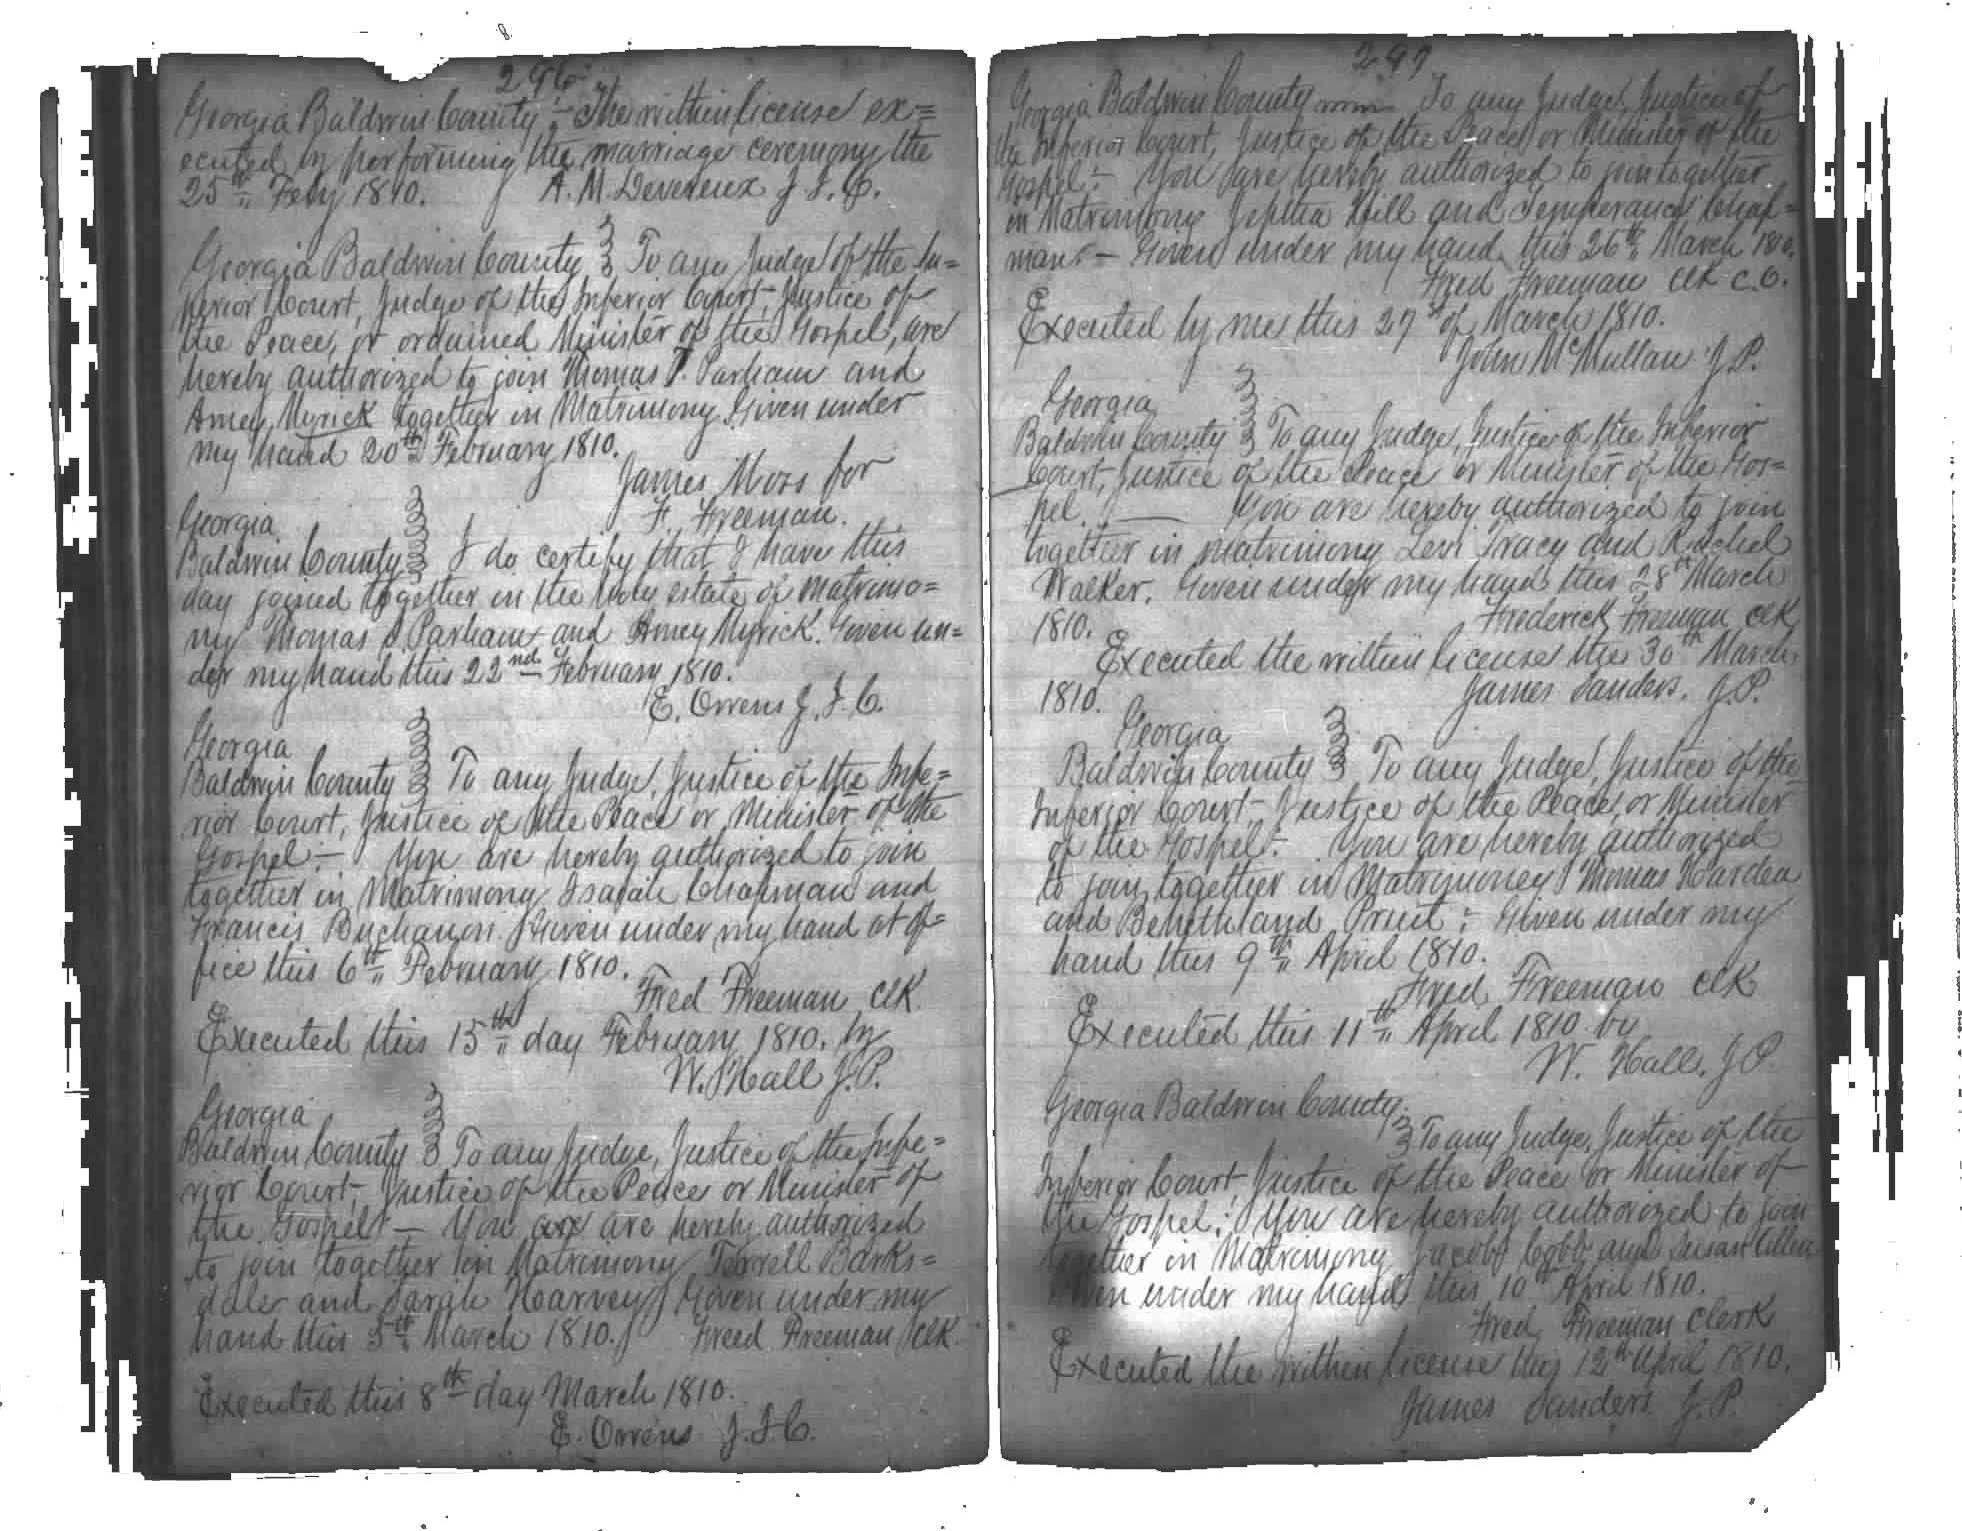 296
Georgia Baldwin County :- The within license ex=
ecuted by performing the marriage ceremony the
25th Feby 1810. A. M. Devereux J. I. C.
Georgia Baldwin County } To any Judge of the Su=
perior Court, Judge of the Inferior Court, Justice of
the Peace, or ordained Minister of the Gospel, are
hereby authorized to join Thomas T. Parham and
Amey Myrick together in Matrimony. Given under
my hand 20th February 1810.
James Moss for
F. Freeman.
Georgia
Baldwin County } I do certify that I have this
day joined together in the holy estate of matrimo=
ny Thomas Parham and Amey Myrick. Given un=
der my hand this 22nd February 1810.
E. Owens J. I. C.
Georgia
Baldwin County } To any Judge, Justice of the Infe=
rior Court, Justice of the Peace or Minister of the
Gospel :- You are hereby authorized to join
together in Matrimony Isaiah Chapman and
Francis Buchanon. Given under my hand at of=
fice this 6th February 1810.
Fred Freeman Clk
Executed this 15th day February 1810. by
W. Hall J. P.
Georgia
Baldwin County } To any Judge, Justice of the Infe=
rior Court, Justice of the Peace or Minister of
the Gospel :- You are are hereby authorized
to join together in Matrimony Terrell Barks=
dale and Sarah Harvey Given under my
hand this 5th March 1810. Freed Freeman Clk.
Executed this 8th day March 1810.
E. Owens J. I. C.
297
Georgia Baldwin County To any Judge, Justice of
the Inferior Court, Justice of the Peace or Minister of the
Gospel :- You are hereby authorized to join together
in Matrimony Jeptha Hill and Temperance Chap=
man. - Given under my hand this 26th March 1810.
Fred Freeman Clk C. O.
Executed by me this 27th of March 1810.
John McMullan J. P.
Georgia
Baldwin County } To any Judge, Justice of the Inferior
Court, Justice of the Peace or Minister of the Gos=
pel. — You are hereby authorized to join
together in matrimony Levi Tracy and Rachel
Walker. Given under my hand this 28th March
1810. Frederick Freeman Clk
Executed the within license this 30th March
1810. James Sanders. J. P.
Georgia
Baldwin County } To any Judge, Justice of the
Inferior Court, Justice of the Peace, or Minister
of the Gospel :- You are hereby authorized
to join together in Matrimoney Thomas Harden
and Benethland Pruit :- Given under my
hand this 9th April 1810.
Fred Freeman Clk
Executed this 11th April 1810 by
W. Hall. J P.
Georgia Baldwin County.
} To any Judge, Justice of the
Inferior Court, Justice of the Peace or Minister of
the Gospel :- You are hereby authorized to join
together in Matrimony Jacob Cobb and Susan
Given under my hand this 10th April 1810.
Fred Freeman Clerk
Executed the within license this 12th April 1810.
James Sanders J. P.